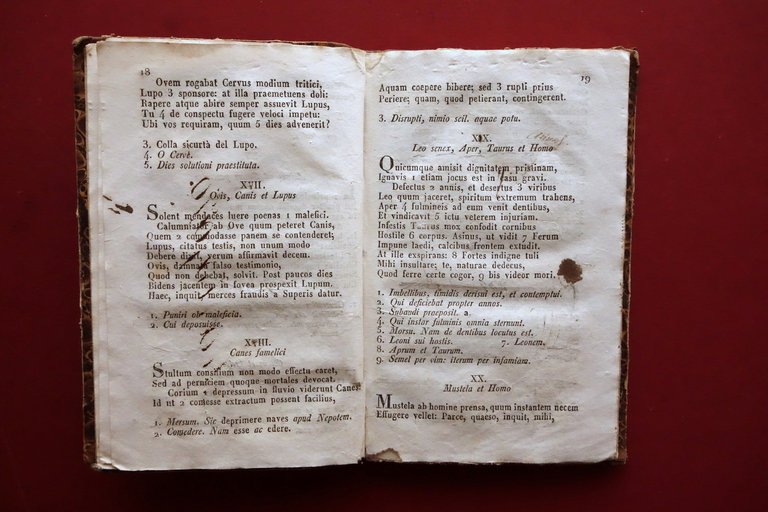 18
Ovem rogabat Cervus modium tritici,
Lupo 3 sponsore: at illa praemetuens doli:
Rapere atque abire semper assuevit Lupus,
Tu 4 de conspectu fugere veloci impetu:
Ubi vos requiram, quum 5 dies advenerit?
3. Colla sicurtà del Lupo.
4. O Cerve.
5. Dies solutioni praestituta.
XVII.
Ovis, Canis et Lupus
Solent mendaces luere poenas 1 malefici.
Calumniator ab Ove quum peteret Canis,
Quem 2 commodasse panem se contenderet;
Lupus, citatus testis, non unum modo
Debere dixit, verum affirmavit decem.
Ovis, damnata falso testimonio,
Quod non debebat, solvit. Post paucos dies
Bidens jacentem in fovea prospexit Lupum.
Haec, inquit, merces fraudis a Superis datur.
1. Puniri ob maleficia.
2. Cui deposuisse.
XVIII.
Canes famelici
Stultum consilium non modo effectu caret,
Sed ad perniciem quoque mortales devocat.
Corium 1 depressum in fluvio viderunt Canes
Id ut 2 comesse extractum possent facilius,
1. Mersum. Sic deprimere naves apud Nepotem.
2. Comedere. Nam esse ac edere.
19
Aquam coepere bibere; sed 3 rupti prius
Periere; quam, quod petierant, contingerent.
3. Disrupti, nimio scil. aquae potu.
XIX.
Leo senex, Aper, Taurus et Homo
Quicumque amisit dignitatem pristinam,
Ignavis 1 etiam jocus est in casu gravi.
Defectus 2 annis, et desertus 3 viribus
Leo quum jaceret, spiritum extremum trahens,
Aper 4 fulmineis ad eum venit dentibus,
Et vindicavit 5 ictu veterem injuriam.
Infestis Taurus mox confodit cornibus
Hostile 6 corpus. Asinus, ut vidit 7 Ferum
Impune laedi, calcibus frontem extudit.
At ille exspirans: 8 Fortes indigne tuli
Mihi insultare; te, naturae dedecus,
Quod ferre certe cogor, 9 bis videor mori.
1. Imbellibus, timidis derisui est, et contemptui.
2. Qui deficiebat propter annos.
3. Subaudi praeposit. a.
4. Qui instar fulminis omnia sternunt.
5. Morsu. Nam de dentibus locutus est.
6. Leoni sui hostis. 7. Leonem.
8. Aprum et Taurum.
9. Semel per vim: iterum per infamiam.
XX.
Mustela et Homo
Mustela ab homine prensa, quum instantem necem
Effugere vellet: Parce, quaeso, inquit, mihi,